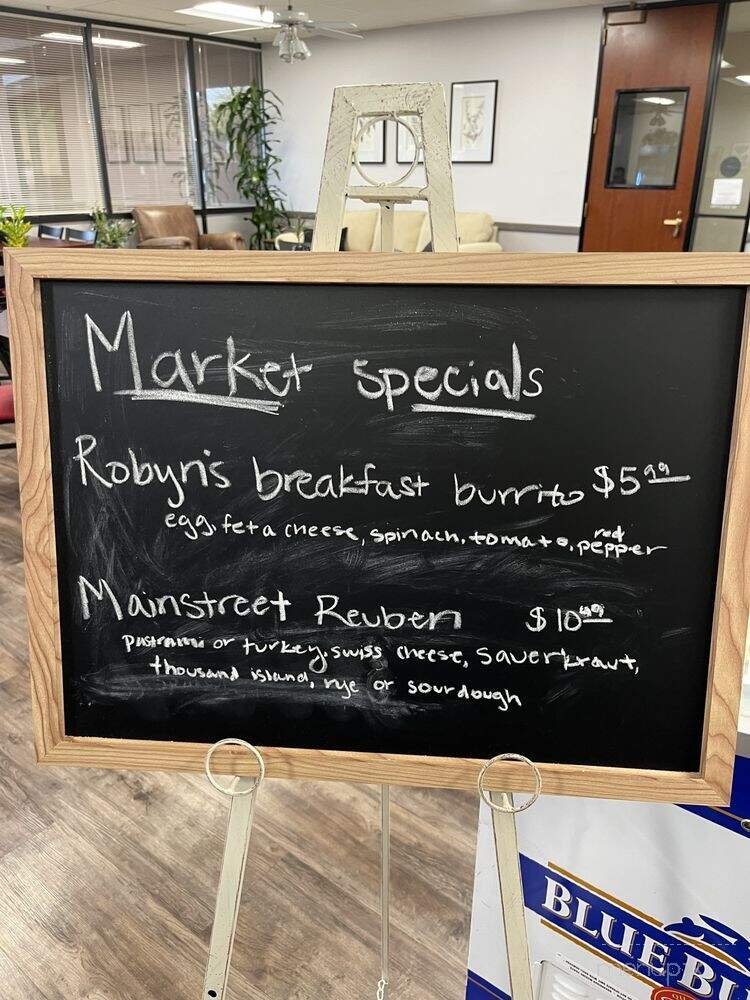 Market specials
Robyn's breakfast burrito $5.99
egg, feta cheese, spinach, tomato, red pepper
Mainstreet Reuben $10.99
pastrami or turkey, swiss cheese, sauerkraut,
thousand island, rye or sourdough
BLUE BU